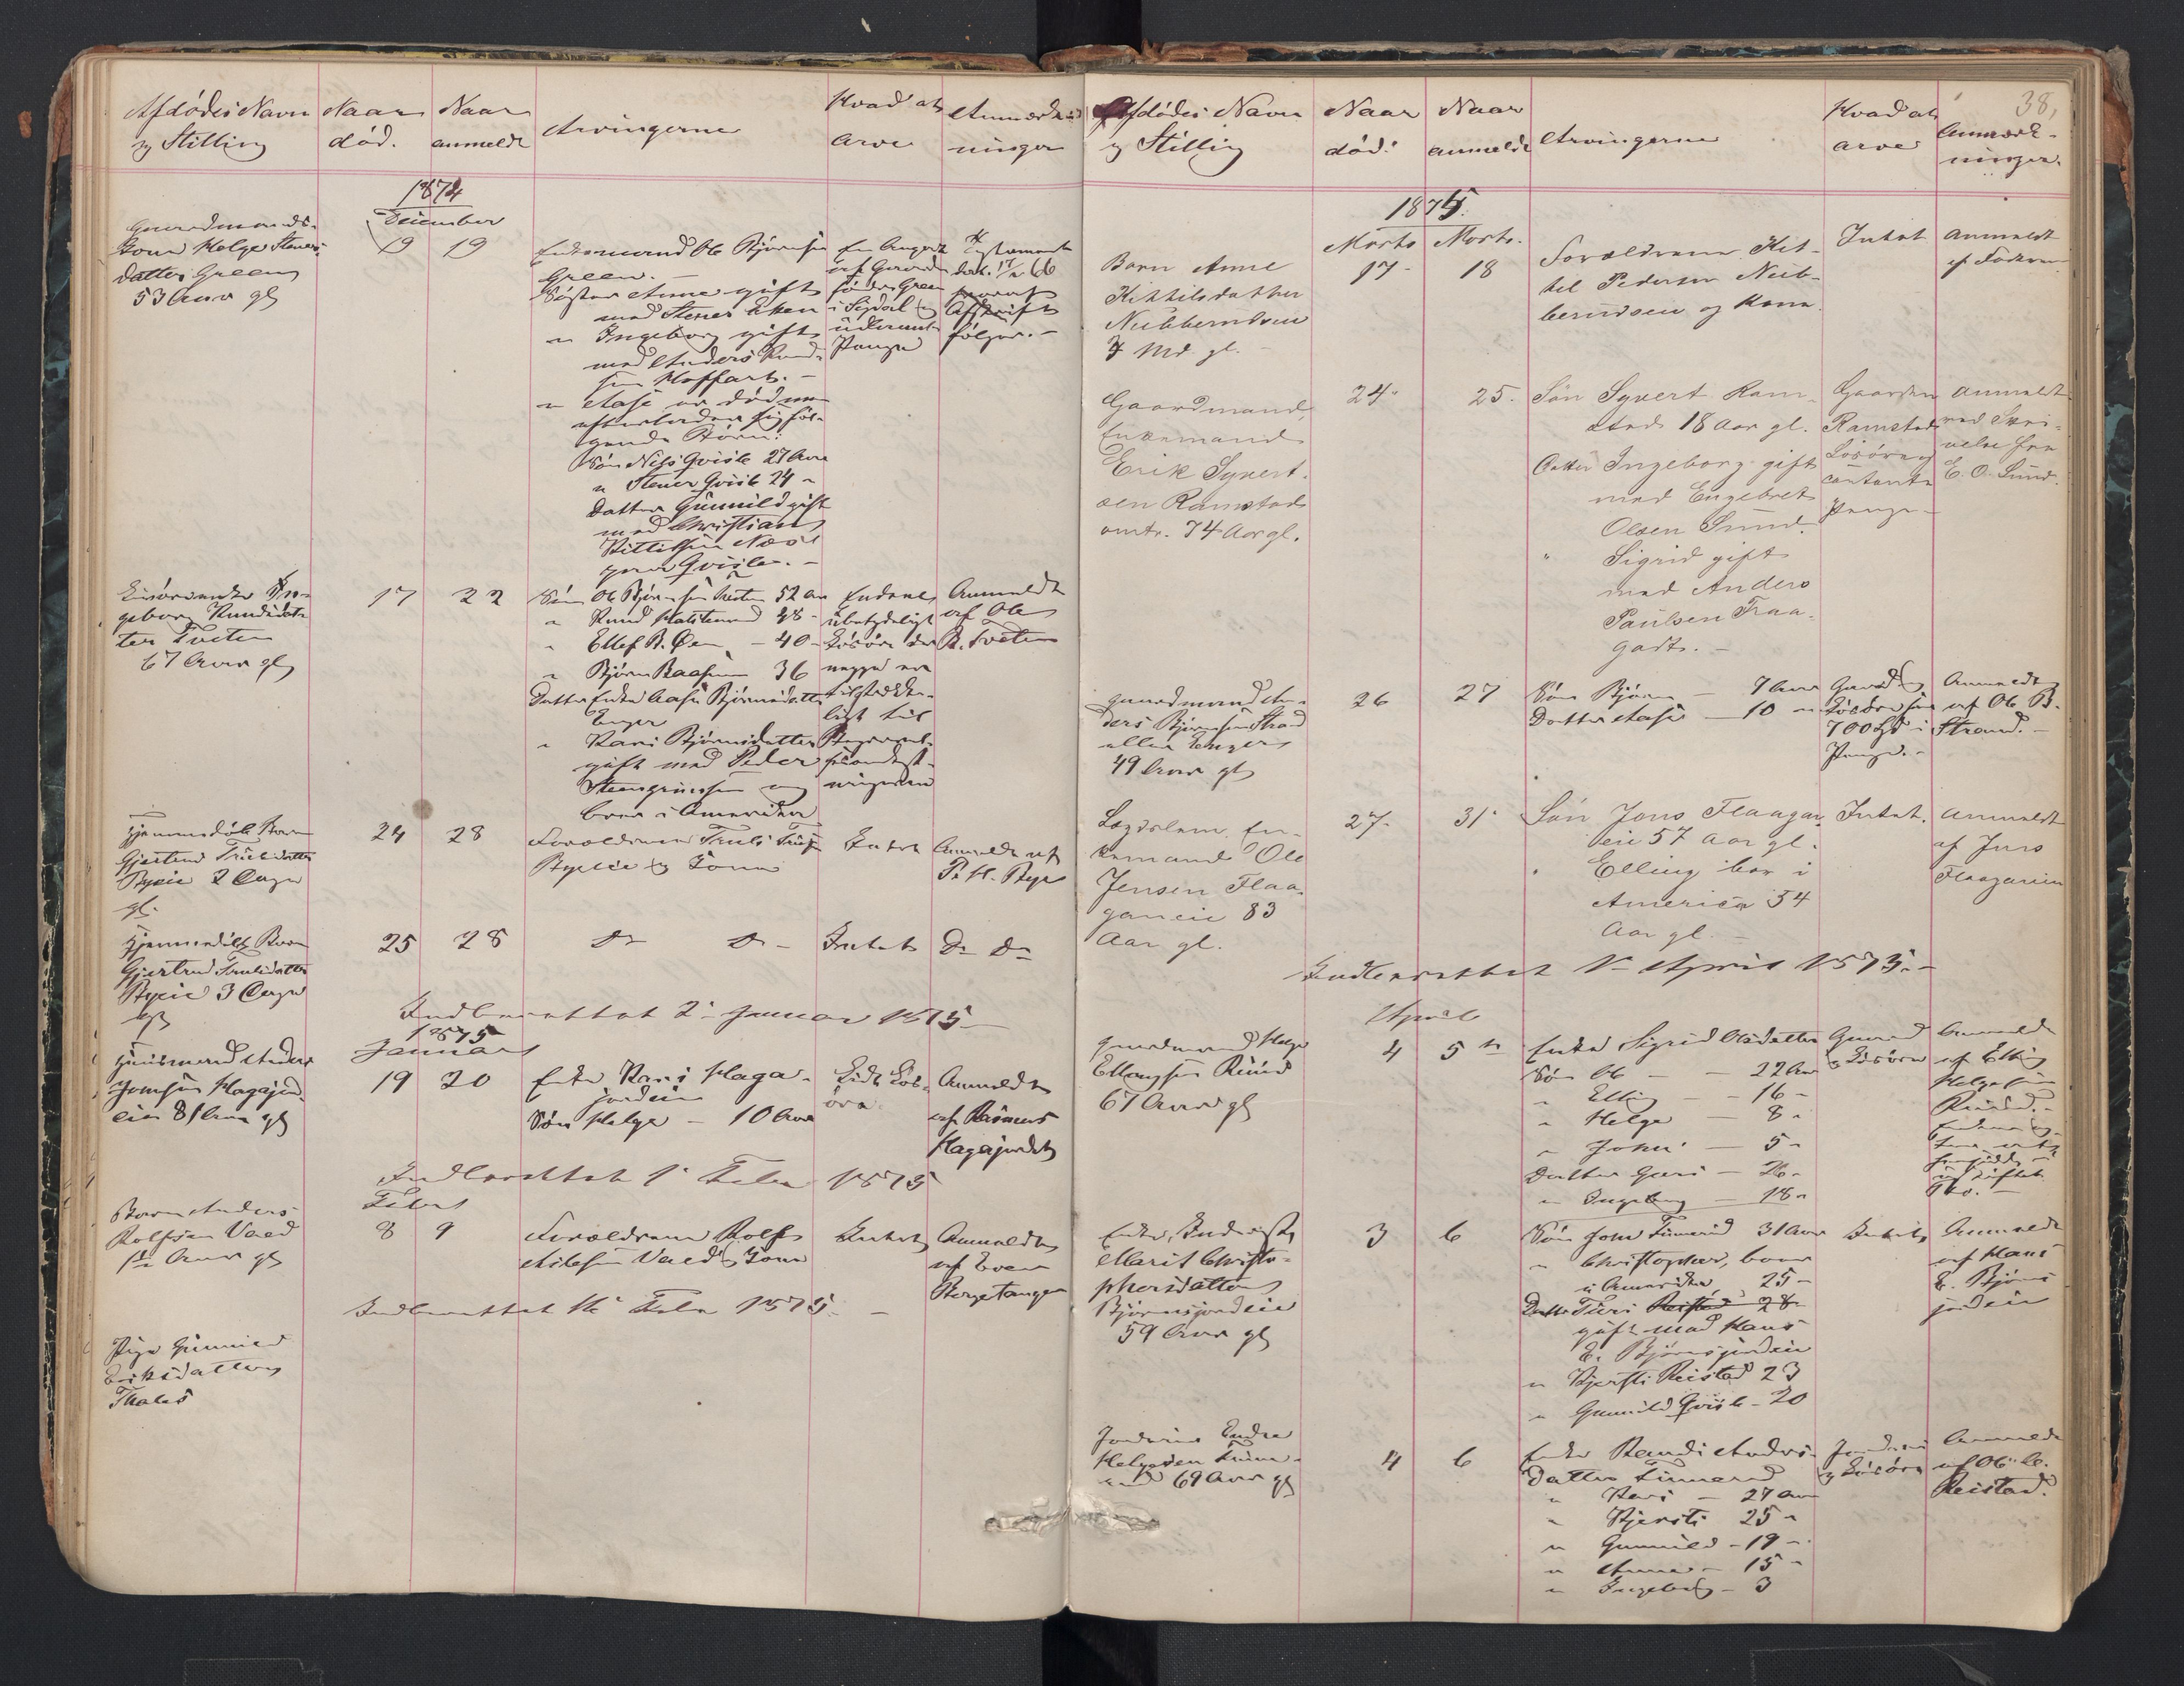 Afdødes Navn
og Stilling
Naar
død.
Naar
anmeldt
Arvingerne
Hvad at
arve
Anmærk-
ninger
1874
December
Gaardmands-
kone Helge Steners-
datter Green
53 Aar gl
19
19
Enkemand Ole Bjørnsen
Green. -
Søster Anne gift
med Stener Eken
" Ingeborg gift
med Anders Knud-
sen Hoffart. -
" Aase er død men
efterlader sig føl-
gende Børn:
Søn Nils Qvisle 27 Aar
" Stener Qvisle 24 "
Datter Gunnild gift
med Christian
Kittilsen Næs
paa Qvisle. -
i Sigdal og
Penge
Testament
dat. 17/2 66
Afskrift
følger. -
Inderstenke In-
geborg Knudsdat-
ter Tveten
67 Aar gl
17
22
Søn Ole Bjørnsen Tveten 52 Aar
" Knud 48 -
" Ellef B. Øen - 40 -
" Bjørn Baasen 36
Datter Enke Aase Bjørnsdatter
Enger
" Kari Bjørnsdatter
gift med Peder
Steengrimsen og
boer i Amerika
Endeel
ubetydeligt
Løsøre der
neppe er
tilstrække-
ligt til
Begravel-
sesomkost-
ningerne
Anmeldt
af Ole
B. Tveten
Hjemmedøbt Barn
Gjertrud Trulsdatter
Byeie 2 Dage
gl.
24
28
Forældrene Truls
Byeie og Kone
Intet
Anmeldt af
P. H. Bye
Hjemmedøbt Barn
Gjertrud Trulsdatter
Byeie 3 Dage
gl
25
28
Do Do -
Intet
Do Do
Indberettet 2. Januar 1875 -
1875
Januar
Huusmand Anders
Jonsen Hagajord-
eie 81 Aar gl
19
20
Enke Kari Haga-
jordeie
Søn Helge - 10 Aar
Lidt Løs-
øre
Anmeldt
af Rasmus
Hagajordet
Indberettet 1. Febr 1875
Febr
Barn Anders
Rolfsen Vaed
1/2 Aar gl
8
9
Forældrene Rolf
Nilsen Vaed og Kone
Intet
Anmeldt
af Even
Borgetangen
Indberettet 16. Febr 1875. -
Pige Gunnild
Eriksdatter
Thales
38,
Afdødes Navn
og Stilling
Naar
død.
Naar
anmeldt
Arvingerne
Hvad at
arve
Anmærk-
ninger.
1875.
Marts
Marts.
Barn Anne
Kittilsdatter
Nubberudseie
7 Md. gl. -
17 -
18
Forældrene Kit-
til Pedersen Nub-
berudseie og Kone
Intet
Anmeldt
af Faderen
Gaardmand,
Enkemand
Erik Syvert-
sen Ramstad
omtr. 74 Aar gl.
24.
25.
Søn Syvert Ram-
stad 18 Aar gl.
Datter Ingeborg gift
med Engebret
Olsen Sund
" Sigrid gift
med Anders
Paulsen Fraa-
gadt. -
Gaarden
Ramstad
Løsøre og
contante
Penge -
Anmeldt
ved Skri-
velse fra
E. O. Sund.
Gaardmand An-
ders Bjørnsen Strand
eller Enger
49 Aar gl
26
27
Søn Bjørn - 7 Aar
Datter Aase - 10 "
Gaard og
Løsøre
700 Spd i
Penge. -
Anmeldt
af Ole B.
Strand. -
Lægdslem En-
kemand Ole
Jensen Flaa-
ganeie 83
Aar gl.
27.
31.
Søn Jens Flaagan-
eie 57 Aar gl.
" Elling bor i
America 54
Aar gl. -
Intet.
Anmeldt
af Jens
Flaaganeie
Indberettet 1. April 1875. -
April
Gaardmand Helge
Ellingsen Ruud
67 Aar gl
4
5 te
Enke Sigrid Olsdatter
Søn Ole - - 22 Aar
" Elling - - 16 -
" Helge - 8 "
" John - 5 "
Datter Guri - 26 -
" Ingeborg - 18 "
Gaard
og Løsøre
Anmeldt
af Elling
Helgesen
Ruud. -
Enke, Inderst
Marit Christo-
phersdatter
Bjørnsjordeie
59 Aar gl
3
6
Søn John Finnerud 31 Aar
" Christopher, boer
i Amerika 25 -
Datter Turi Reistad 28 -
gift med Hans
E. Bjørnsjordeie
" Kjersti Reistad 23
" Gunnild Qvisle - 20
Intet
Anmeldt
af Hans
E. Bjørns-
jordeie
Jordeier Endre
Helgesen Finne-
rud 69 Aar gl
4
6
Enke Randi Anders-
datter Finnerud
" Kari - 27 Aar
" Kjersti 25 "
" Gunnild - 19 -
" Anne - 15 "
" Ingeborg - 3
og Løsøre
Anmeldt
af Ole C.
Reistad.